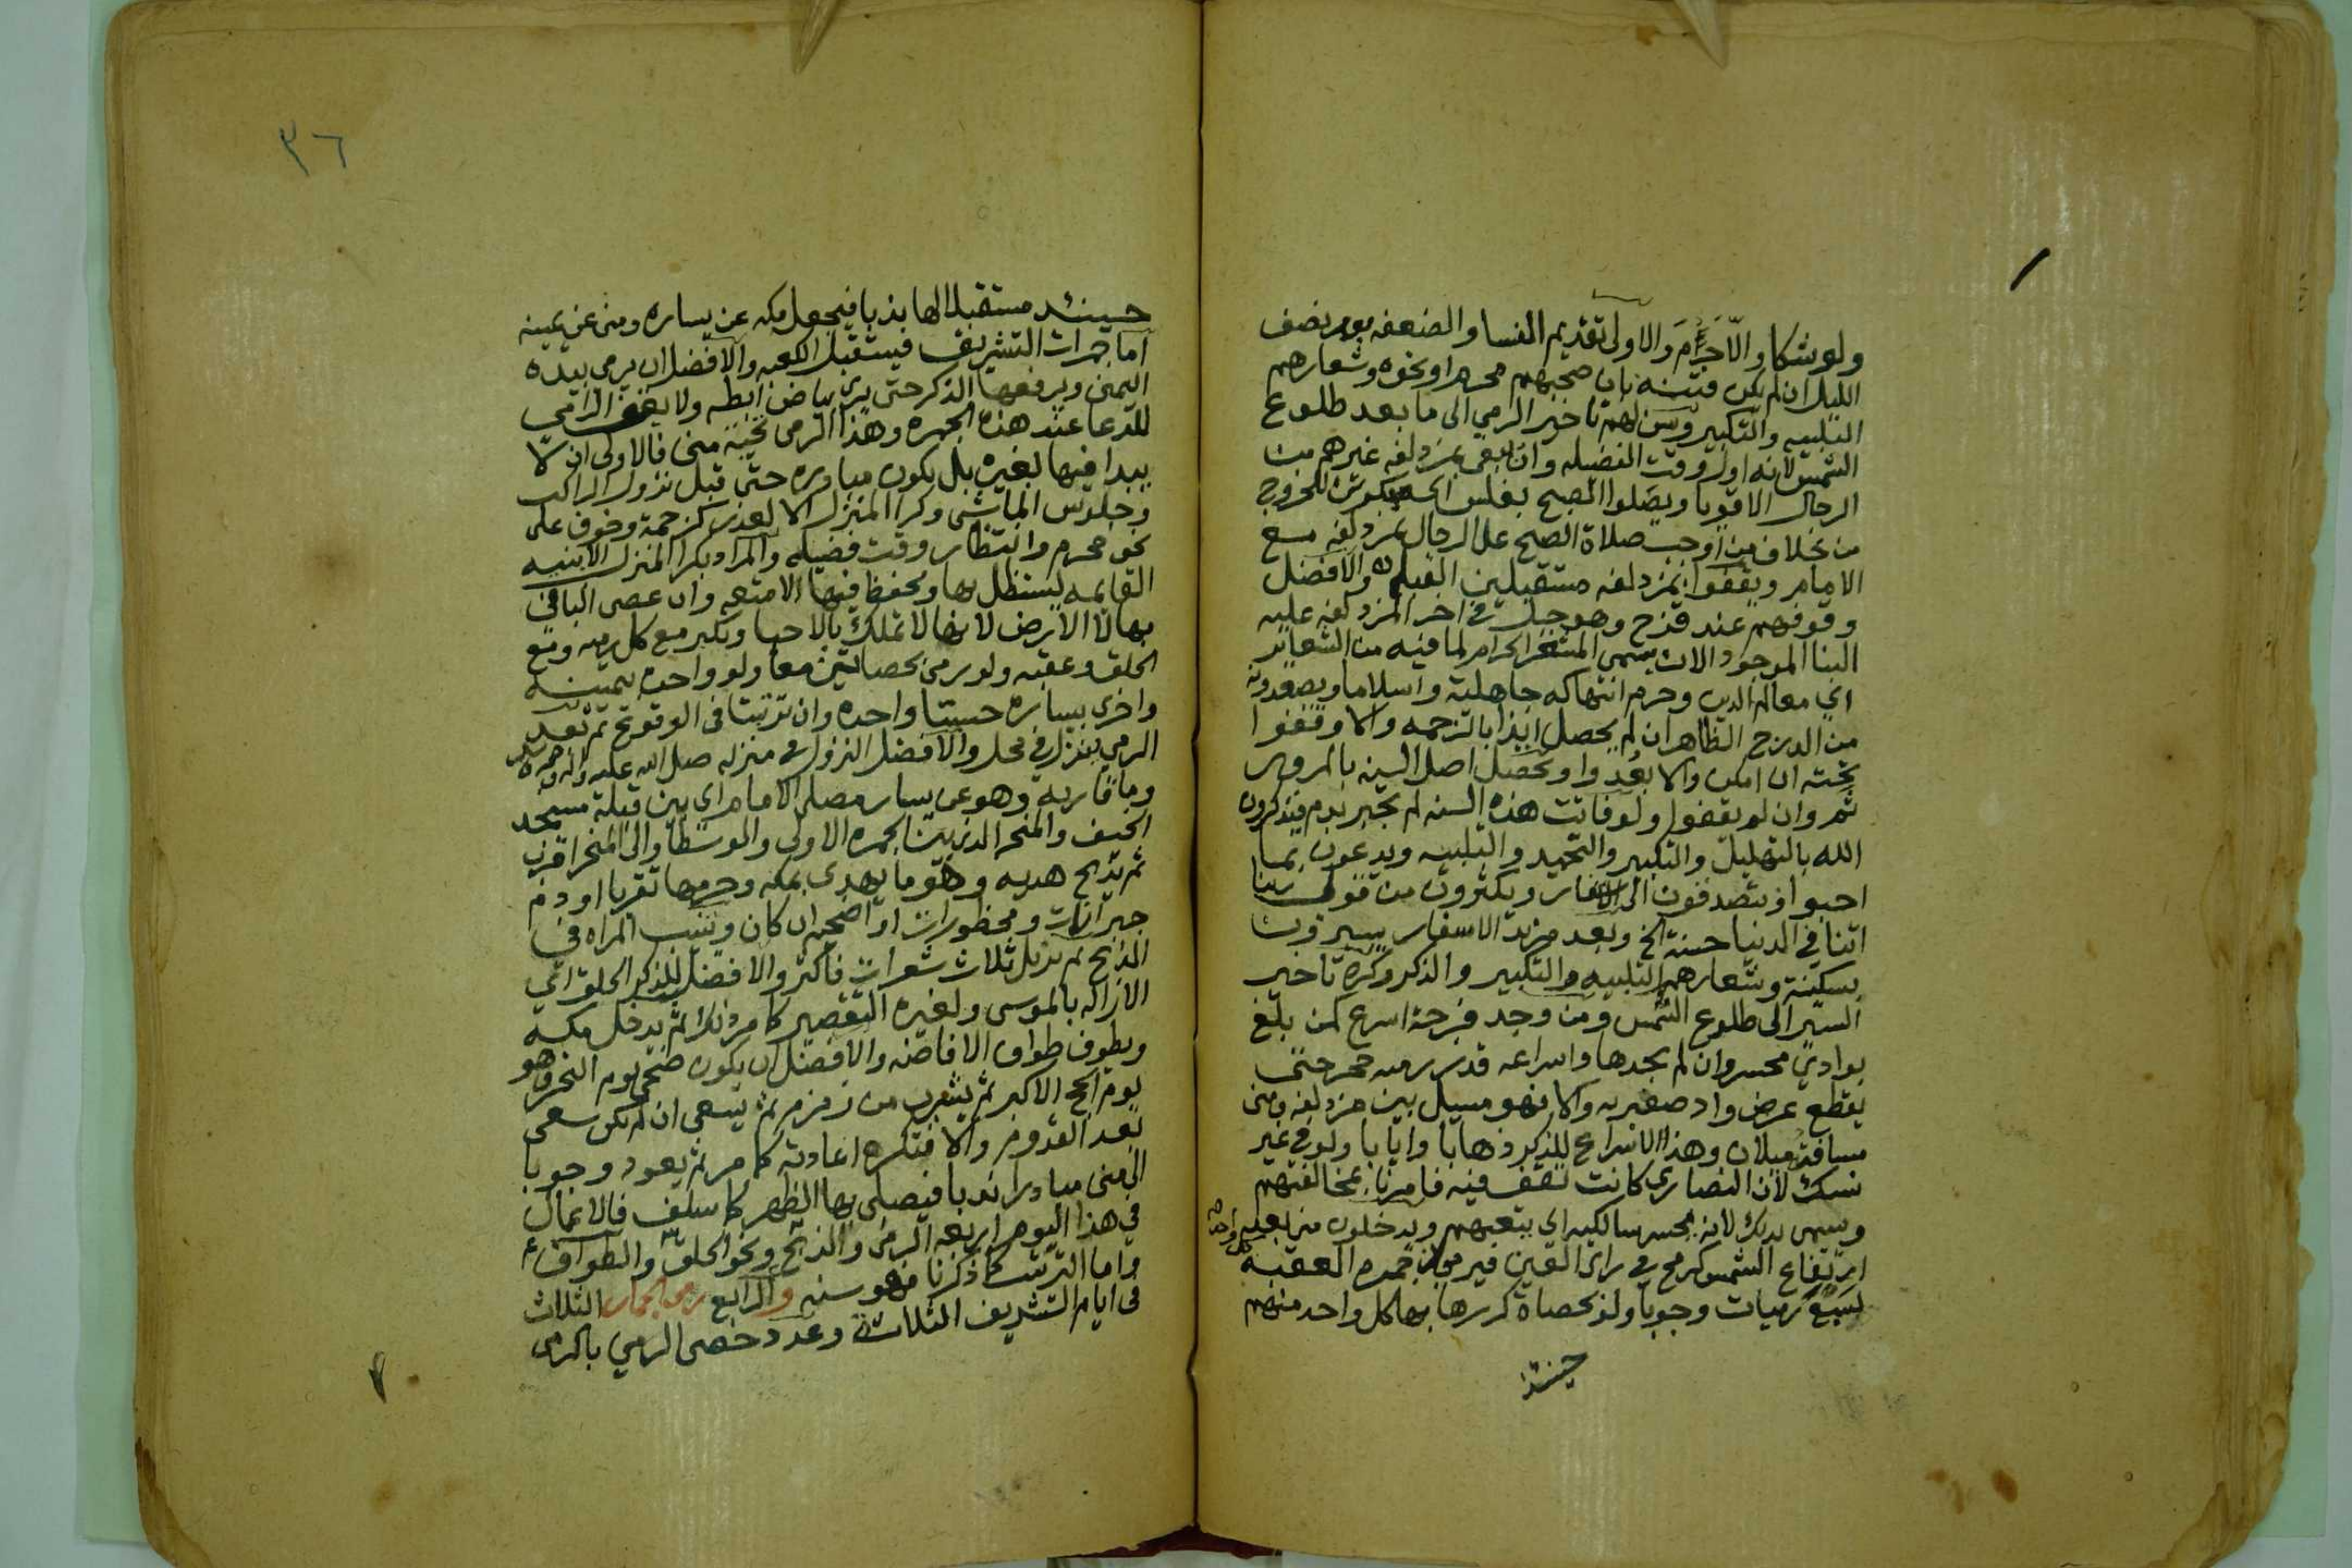 ولو شكا والا حرم والاولى تقديم النسا والضعفه بعد نصف
الليل ان لم يكن فتنة بان صحبهم محرم او نحوه وشعارهم
التلبيه والتكبير وسن لهم تاخير الرمي الى ما بعد طلوع
الشمس لانه اول وقت الفضيله وان يبقى بمزدلفه غيرهم من
الرجال الاقويا ويصلوا الصبح بغلس للخروج
من خلاف من اوجب صلاة الصبح على الرجال بمزدلفه مع
الامام ويقفوا بمزدلفه مستقبلين القبله والافضل
وقوفهم عند قزح وهو جبل في اخر المزدلفه عليه
البنا الموجود الان يسمى المشعر الحرام لما فيه من الشعاير
اي معالم الدين وحرم انتهاكه جاهلية واسلاما ويصعدونه
من الدرج الظاهر ان لم يحصل ايذا بالزحمه والا وقفوا
تحته ان امكن والا بعدوا وتحصل اصل السنه بالمرور
ثم وان لم يقفوا ولو فاتت هذه السنه لم تجبر بدم فيذكرون
الله بالتهليل والتكبير والتحميد والتلبيه ويدعون بما
احبوا ويتصدقون الى الاسفار ويكثرون من قول ربنا
اتنا في الدنيا حسنة الخ وبعد مزيد الاسفار يسيرون
بسكينة وشعارهم التلبيه والتكبير والذكر وكره تاخير
السير الى طلوع الشمس ومن وجد فرجة اسرع كمن بلغ
بوادي محسر وان لم يجدها واسراعه قدر رميه حجر حتى
يقطع عرض واد صغير به والا فهو مسيل بين مزدلفه ومنى
مسافته ميلان وهذا الاسراع للذكر ذهابا وايابا ولو في غير
نسك لان النصارى كانت تقف فيه فامرنا بمخالفتهم
وسمى بذلك لانه يحسر سالكيه اي يتعبهم ويدخلون منى بعد
ارتفاع الشمس كرمح في راى العين فيرمي كل واحد جمرة العقبة
بسبع رميات وجوبا ولو بحصاة كررها بها كل واحد منهم
حينئذ
٣٦
حينئذ مستقبلا لها ندبا فيجعل مكه عن يساره ومنى عن يمينه
اما جمرات التشريق فيستقبل الكعبه والافضل ان يرمي بيده
اليمنى ويرفعها الذكر حتى يرى بياض ابطه ولا يقف الرامي
للدعا عند هذه الجمره وهذا الرمي تحية منى فالاولى ان لا
يبدا فيها بغيره بل يكون مبادره حتى قبل نزول الراكب
وجلوس الماشي وكرا المنزل الا لعذر كزحمة وخوف على
نحو محرم وانتظار وقت فضيله والمراد بكرا المنزل الابنيه
القايمه ليستظل بها ويحفظ فيها الامتعه وان عصى الباني
بها لا الارض لانها لا تملك بالاحيا ويكبر مع كل رميه ومع
الحلق وعقبه ولو رمى بحصاتين معا ولو واحده بيمينه
واخرى بيساره حسبتا واحده وان ترتبتا في الوقوع ثم بعد
الرمي ينزل في محل والافضل النزول في منزله صلى الله عليه واله وصحبه وسلم
وما قاربه وهو عن يسار مصلى الامام اي بين قبلة مسجد
الخيف والمنحر الذي بين الجمرة الاولى والوسطا والى المنحر اقرب
ثم يذبح هديه وهو ما يهدى بمكه وحرمها تقربا او دم
جبرانات ومحظورات او اضحيه ان كان وتنيب المراه في
الذبح ثم يزيل ثلاث شعرات فاكثر والافضل للذكر الحلق اي
الازاله بالموسى ولغيره التقصير كما مر ذلك ثم يدخل مكه
ويطوف طواف الافاضه والافضل ان يكون ضحى يوم النحر وهو
يوم الحج الاكبر ثم يشرب من زمزم ثم يسعى ان لم يكن سعى
بعد القدوم والا فتكره اعادته كما مر ثم يعود وجوبا
الى منى مبادرا ندبا فيصلي بها الظهر كما سلف فالاعمال
في هذا اليوم اربعه الرمي والذبح ونحو الحلق والطواف
واما الترتيب كما ذكرنا فهو سنه والرابع رمي الجمار الثلاث
في ايام التشريف الثلاثة وعدد حصى الرمي بالرمي